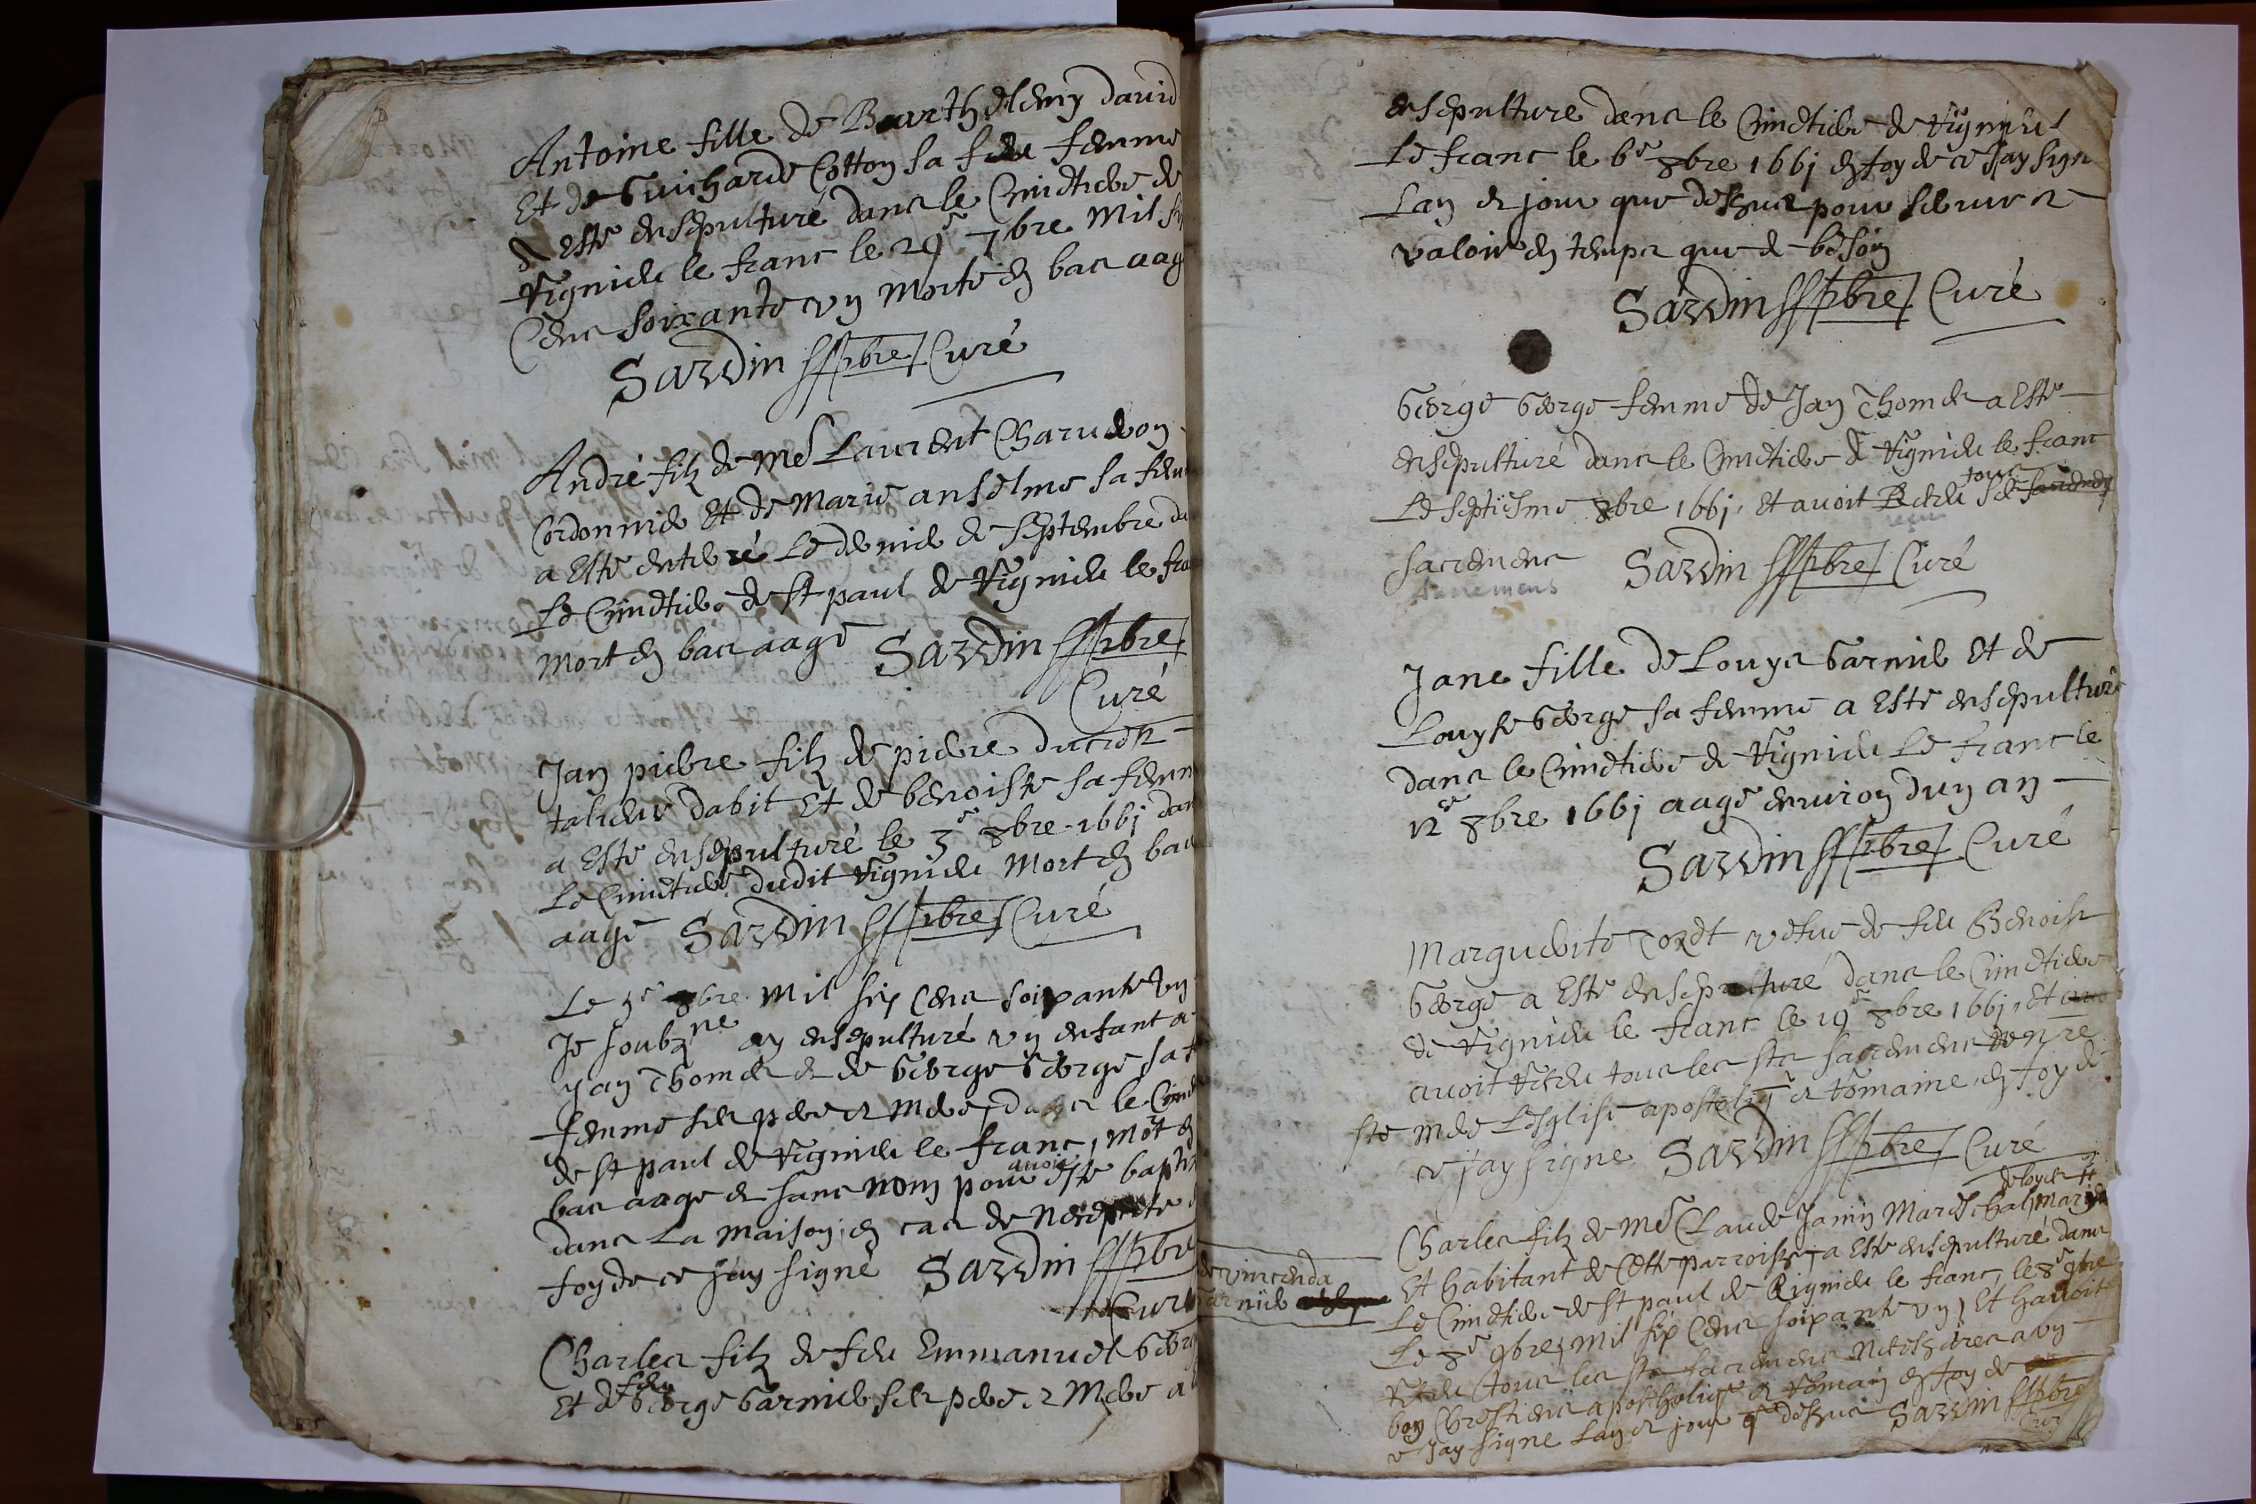 Antoine fille de Barthelemy david
Et de Guicharde Cotton sa feue femme
a Esté ensepulturé dans le Cimetiere de
Vignieu le franc le 29e 7bre Mil
Cens soixante un Morte en bas aag
Sardin pbre Curé
André filz de Me Laurent Charueon
Cordonnier Et de Marie anselme sa fem
a Esté enterré Le dernier de septembre da
Le Cimetiere de st paul de Vignieu le fra
Mort en bas aagé Sardin pbre
Curé
Jan pierre filz de pierre ducret
talieur dabit Et de benoiste sa femm
a Esté ensepulturé le 3e 8bre 1661 dan
Le Cimetiere dudit Vignieu Mort en bas
aage Sardin pbre Curé
Le 3e 8bre Mil six Cens soixante un
Je soubzne ay ensepulturé un enfant a
Jan Thomet et de George George sa
femme ses pere et Mere, dans le Cime
de st paul de Vignieu le franc, Mort en
bas aage et sans nom pour avoir esté bapti
dans La Maison, en cas de Necessité
foy de ce Jay signé Sardin pbre
Curé
Charles filz de feu Emmanuel Geor
Et de feu George Garnier ses pere et Mere a
ensepulturé dans le Cimetiere de Vignieu
Le franc le 6e 8bre 1661 en foy de ce Jay sign
Lan et jour que dessus pour servir et
valoir en temps que de besoin
Sardin pbre Curé
George George femme de Jan Thomet a Esté
ensepulturé dans le Cimetiere de Vignieu le franc
Le septiesme 8bre 1661, Et avoit Receu tous ses
sacremens Sardin pbre Curé
Jane fille de Louys Garnier Et de
Louyse George sa femme a Esté ensepulturé
dans le Cimetiere de Vignieu Le franc le
12e 8bre 1661 aagé environ dun an
Sardin pbre Curé
Marguerite vefue de feu Benoist
George a Esté ensepulturé dans le Cimetiere
de Vignieu le franc le 19e 8bre 1661, Et
avoit Receu tous les sts sacremens de nre
ste Mere Lesglise apostoliq et romaine, en foy de
ce jay signe Sardin pbre Curé
Charles filz de Me Claude Janin Mareschal
de vincenda
Garnier
Et habitant de Cette parroisse, a Esté ensepulturé dans
Le Cimetiere de st paul de Vignieu le franc, le 8e 9bre
Le 8e 9bre, Mil six Cens soixante un, Et Havoit
Receu tous les sts sacremens Necessaires a un
bon Chrestiens apostholiq et romain en foy de
ce Jay signe Lan et jour q dessus Sardin pbre
Cur